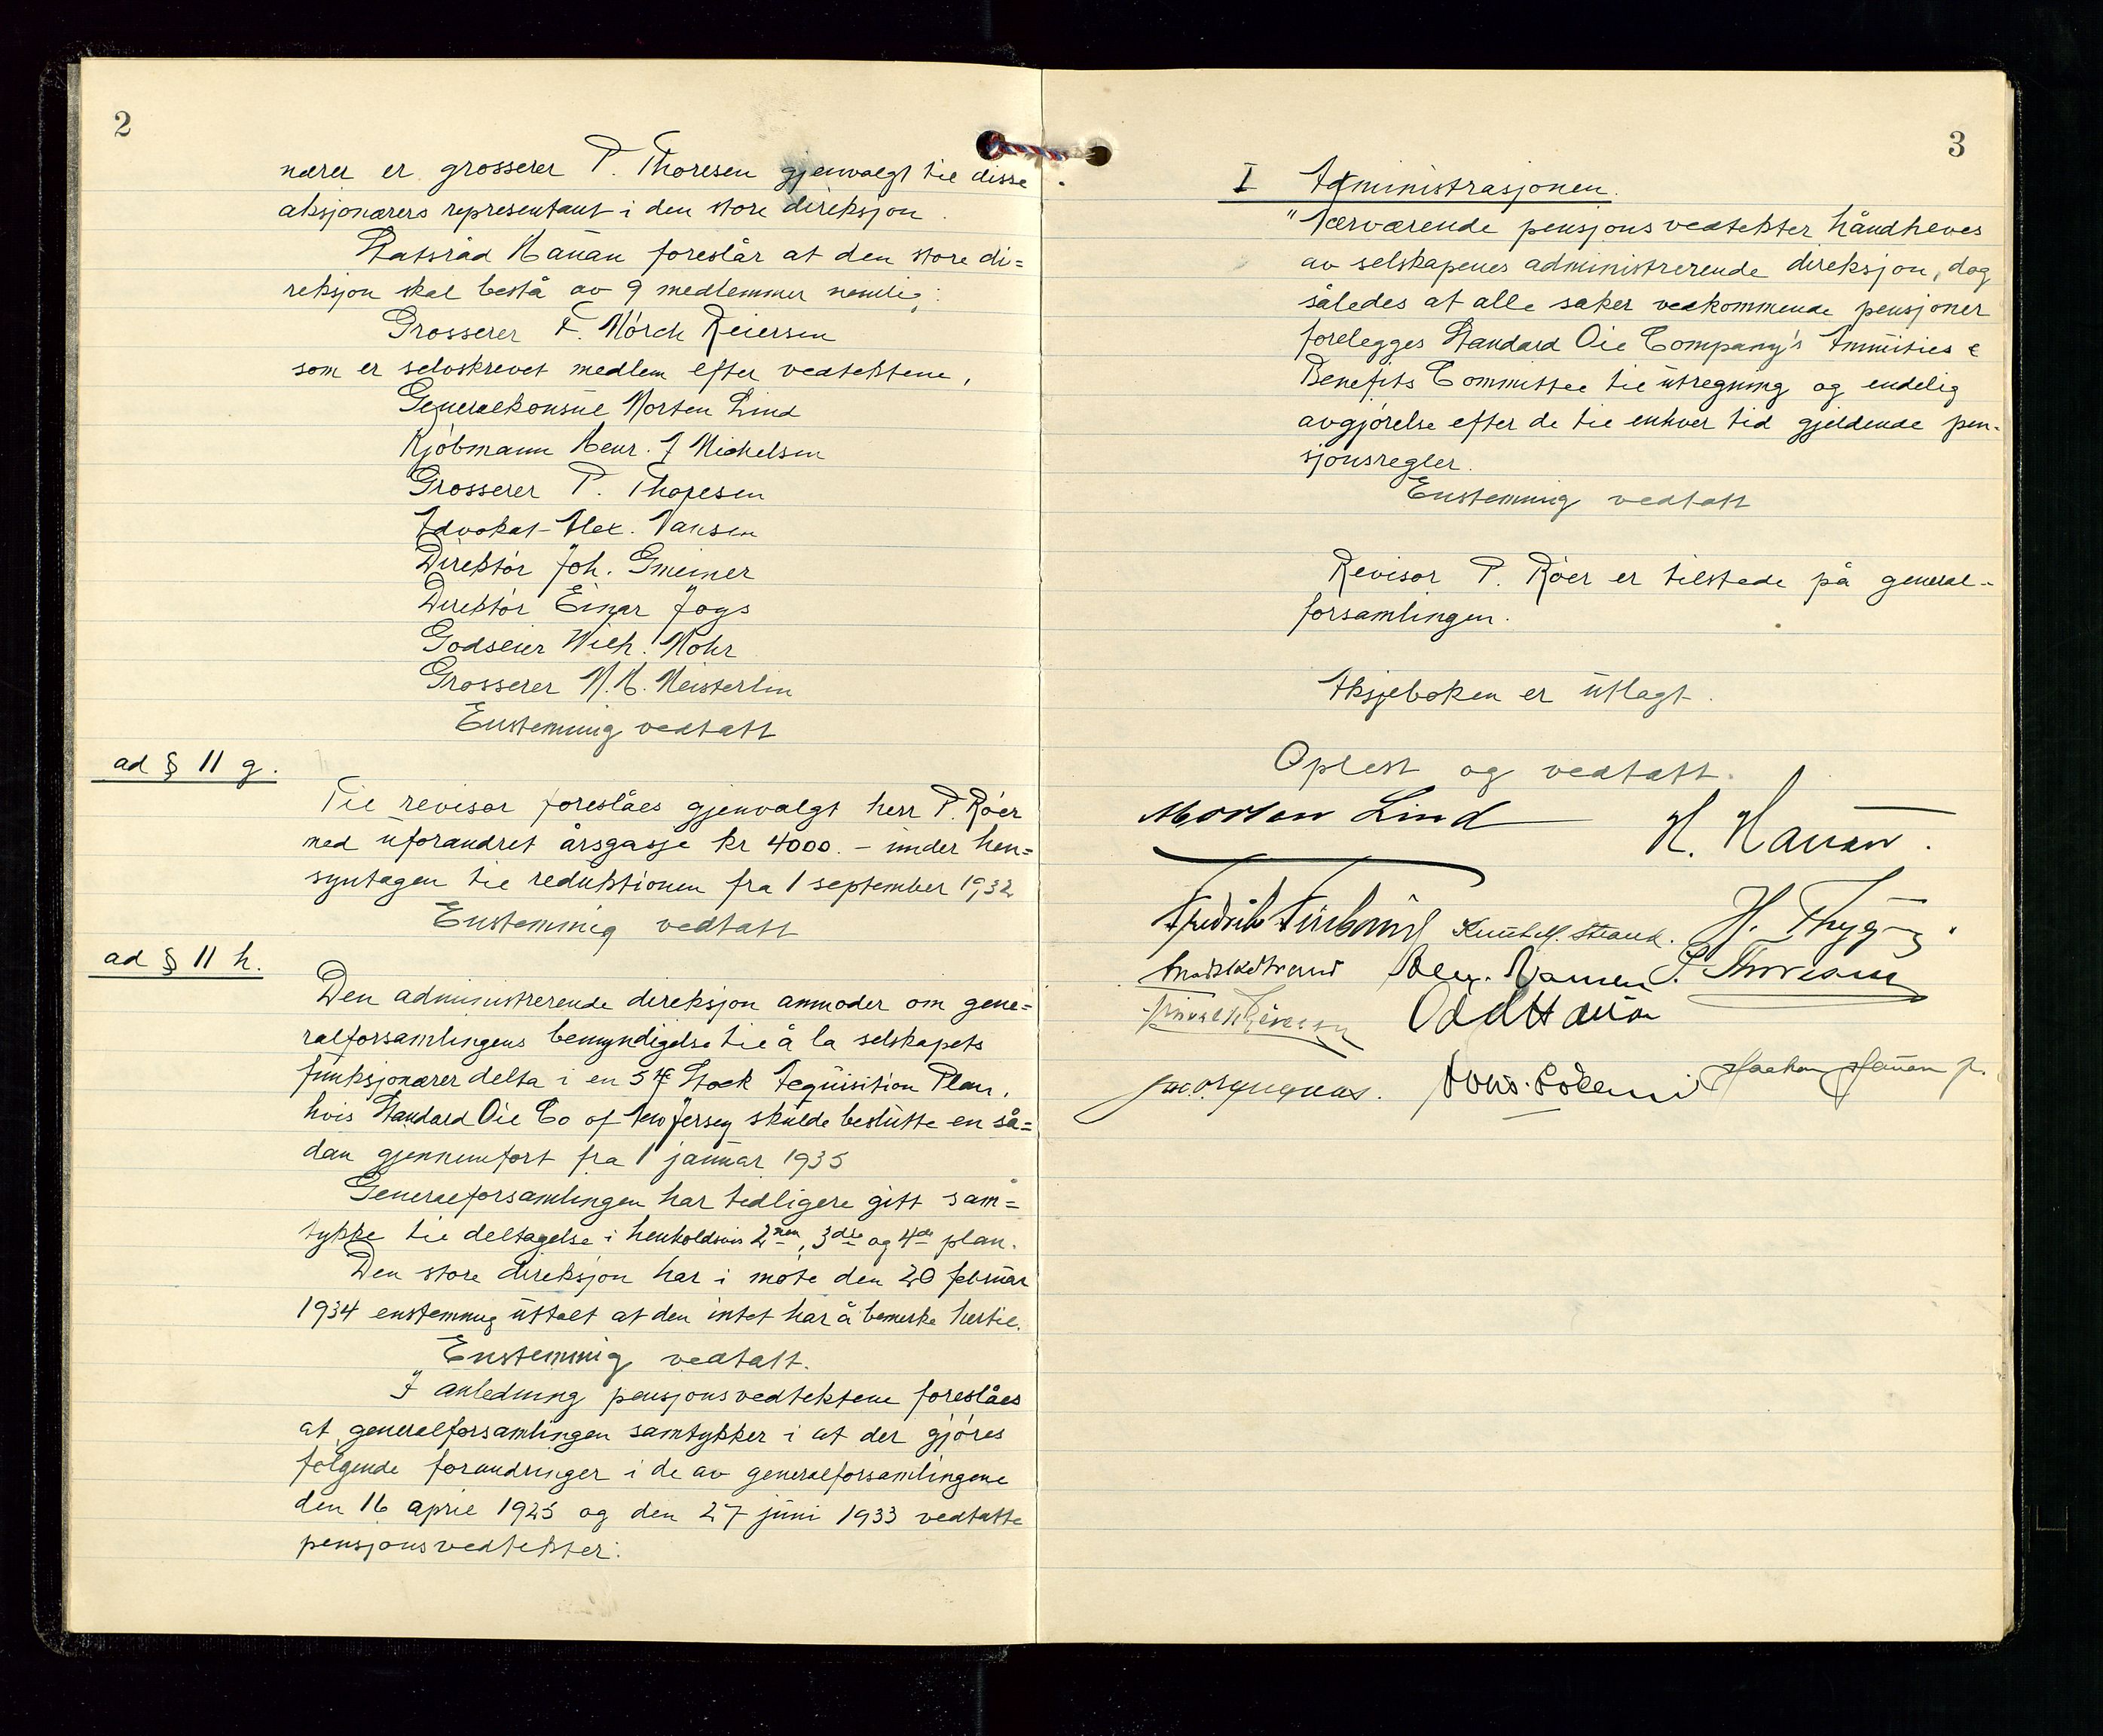 2
nærer er grosserer P. Thoresen gjenvalgt til disse
aksjonærers representant i den store direksjon.
Statsråd Hauan foreslår at den store di=
reksjon skal bestå av 9 medlemmer nemlig:
Grosserer F. Mörch Reiersen
som er selvskrevet medlem efter vedtektene,
Generalkonsul Morten Lind
Kjöbmann Henr. J Michelsen
Grosserer P. Thoresen
Advokat Alex. Nansen
Direktör Joh. Gmeiner
Direktör Einar Joys
Godseier Wilh. Mohr
Grosserer H. H. Meisterlin
Enstemmig vedtatt
ad § 11 g.
Til revisor foreslåes gjenvalgt herr P. Röer
med uforandret årsgasje kr 4000.- under hen=
syntagen til reduktionen fra 1 september 1932
Enstemmig vedtatt
ad § 11 h.
Den administrerende direksjon anmoder om gene=
ralforsamlingens bemyndigelse til å la selskapets
funksjonærer delta i en 5te Stock Acquisition Plan,
hvis Standard Oil Co of New Jersey skulde beslutte en så=
dan gjennemfört fra 1 januar 1935
Generalforsamlingen har tidligere gitt sam=
tykke til deltagelse i henholdsvis 2nen, 3die og 4de plan.
Den store direksjon har i möte den 20 februar
1934 enstemmig uttalt at den intet har å bemerke hertil.
Enstemmig vedtatt.
I anledning pensjonsvedtektene foreslåes
at generalforsamlingen samtykker i at der gjöres
fölgende forandringer i de av generalforsamlingene
den 16 april 1925 og den 27 juni 1933 vedtatte
pensjonsvedtekter:
3
I Administrasjonen.
"Nærværende pensjonsvedtekter håndheves
av selskapenes administrerende direksjon, dog
således at alle saker vedkommende pensjoner
forelegges Standard Oil Company's Annuities &
Benefits Committee til utregning og endelig
avgjörelse efter de til enhver tid gjeldende pen-
sjonsregler.
Enstemmig vedtatt
Revisor P. Röer er tilstede på general-
forsamlingen.
Aksjeboken er utlagt.
Oplest og vedtatt.
Morten Lind H. Hauan.
Fredrik Knut M. Strand. H.
Alex. Nansen P. Thoresen
Odd Hauan
Haakon Hauan jr.